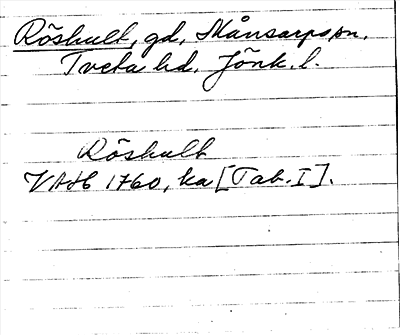 Röshult, gd, Månsarps sn.
Tveta hd. Jönk. l.
Röshult
VAH 1760, ka [Tab. I].